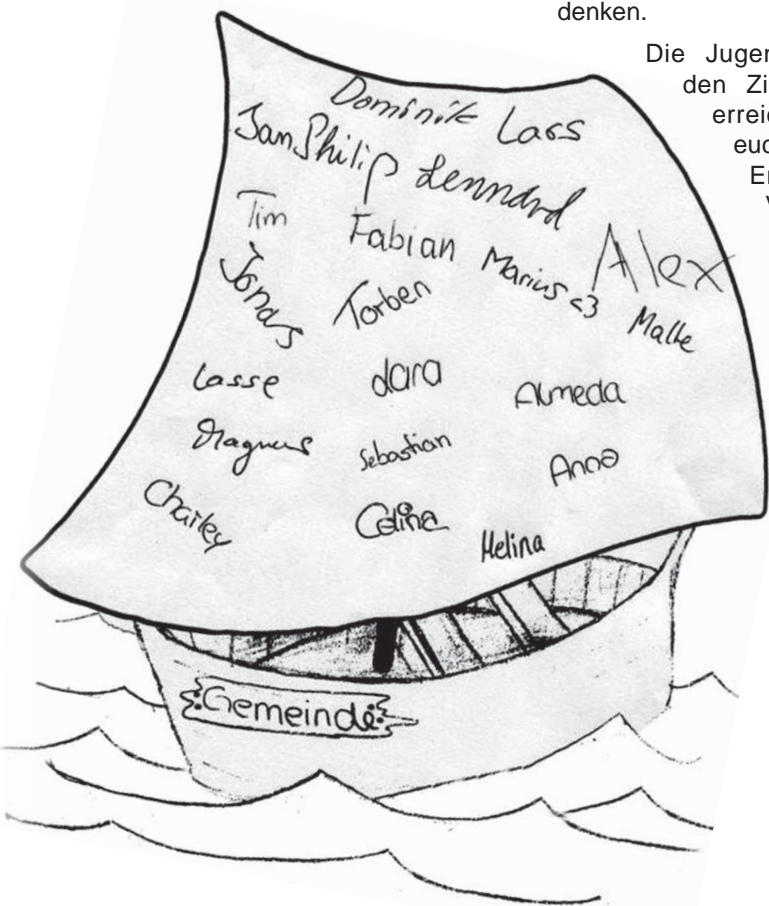 denken.
Die Jugen
den Zi
erreic
euc
Er
V
Dominik Lars
Jan Philip Lennard
Tim Fabian Marius <3 Alex
Jonas Torben Malte
Lasse Lara Almeda
Magnus Sebastian Anna
Charley Celina Melina
Gemeinde